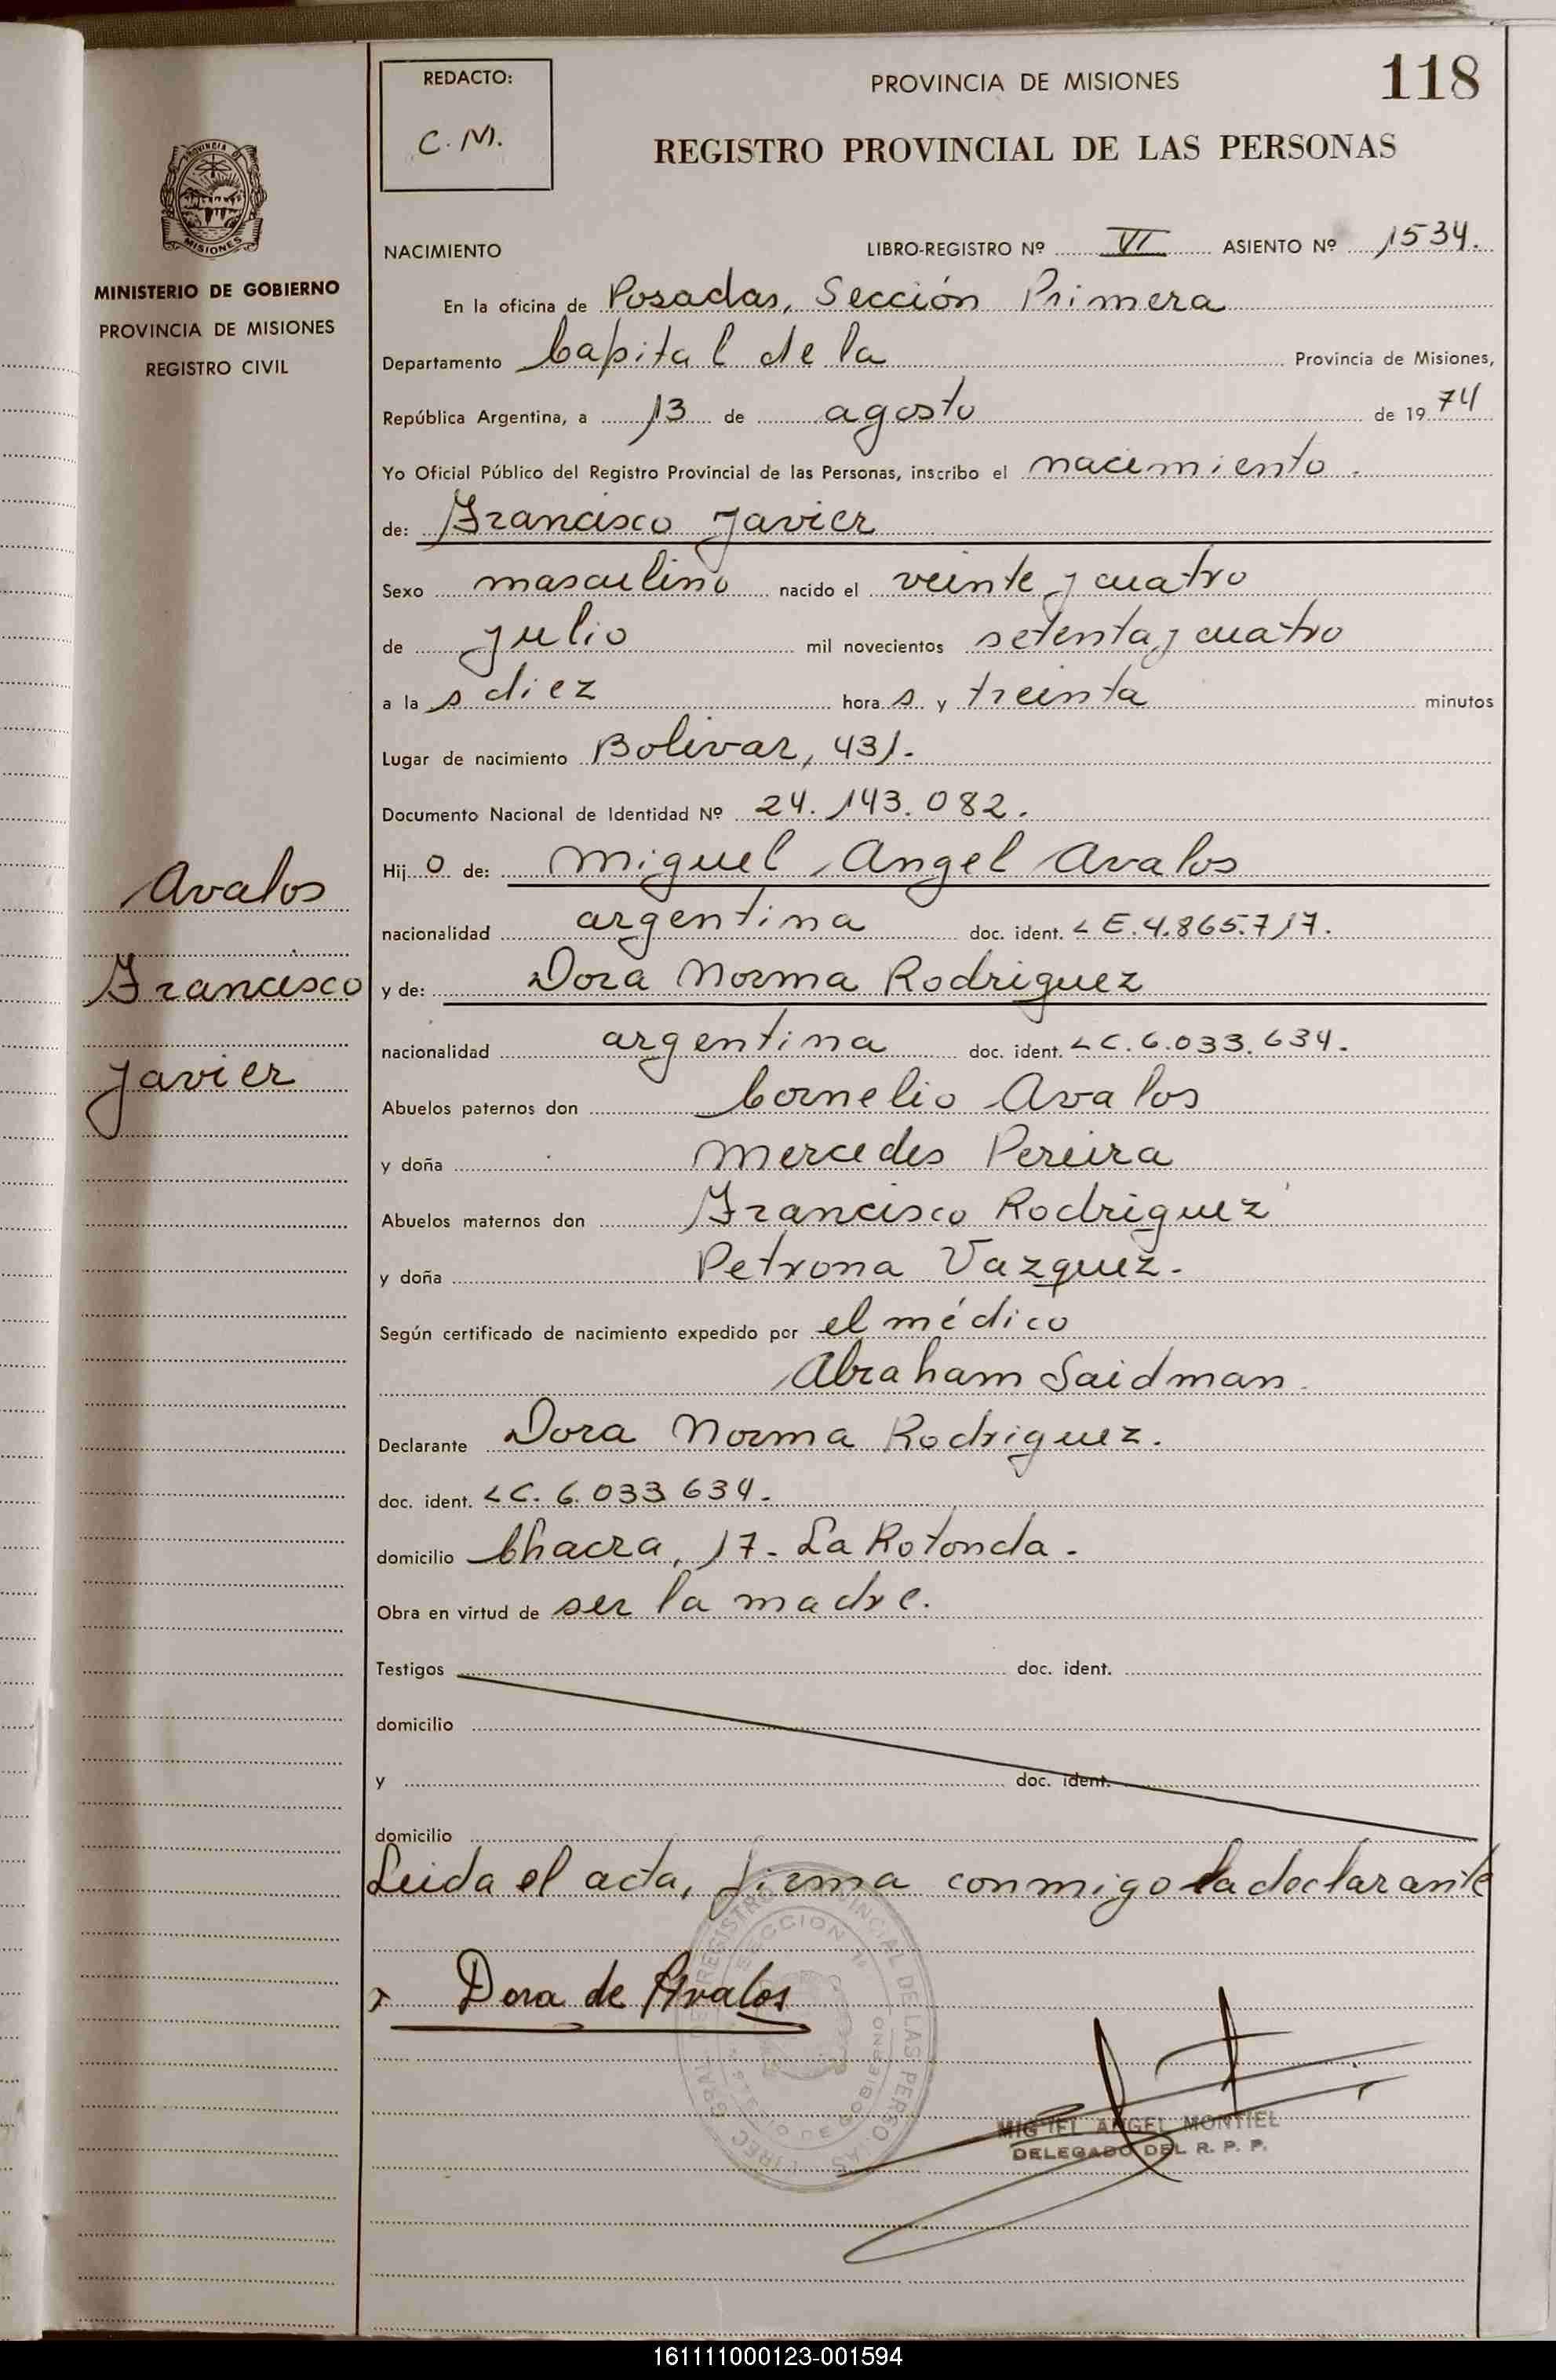 118
REDACTO:
C. M.
PROVINCIA DE MISIONES
REGISTRO PROVINCIAL DE LAS PERSONAS
PROVINCIA
MISIONES
MINISTERIO DE GOBIERNO
PROVINCIA DE MISIONES
REGISTRO CIVIL
Avalos
Francisco
Javier
NACIMIENTO LIBRO-REGISTRO Nº VI ASIENTO Nº 1534.
En la oficina de Posadas, Sección Primera
Departamento Capital de la Provincia de Misiones,
República Argentina, a 13 de agosto de 1974
Yo Oficial Público del Registro Provincial de las Personas, inscribo el nacimiento.
de: Francisco Javier
Sexo masculino nacido el veinte y cuatro
de julio mil novecientos setenta y cuatro
a las diez horas y treinta minutos
Lugar de nacimiento Bolivar, 431.
Documento Nacional de Identidad Nº 24.143.082.
Hijo de: Miguel Angel Avalos
nacionalidad argentina doc. ident. L E. 4.865.717.
y de: Dora Norma Rodriguez
nacionalidad argentina doc. ident. L C. 6.033.634.
Abuelos paternos don Cornelio Avalos
y doña Mercedes Pereira
Abuelos maternos don Francisco Rodriguez
y doña Petrona Vazquez.
Según certificado de nacimiento expedido por el médico
Abraham Saidman
Declarante Dora Norma Rodriguez.
doc. ident. L C. 6.033 634.
domicilio Chacra, 17- La Rotonda.
Obra en virtud de ser la madre.
Testigos doc. ident.
domicilio
y doc. ident.
domicilio
Leida el acta, firma conmigo la declarante
x Dora de Avalos
MIGUEL ANGEL MONTIEL
DELEGADO DEL R. P. P.
161111000123-001594